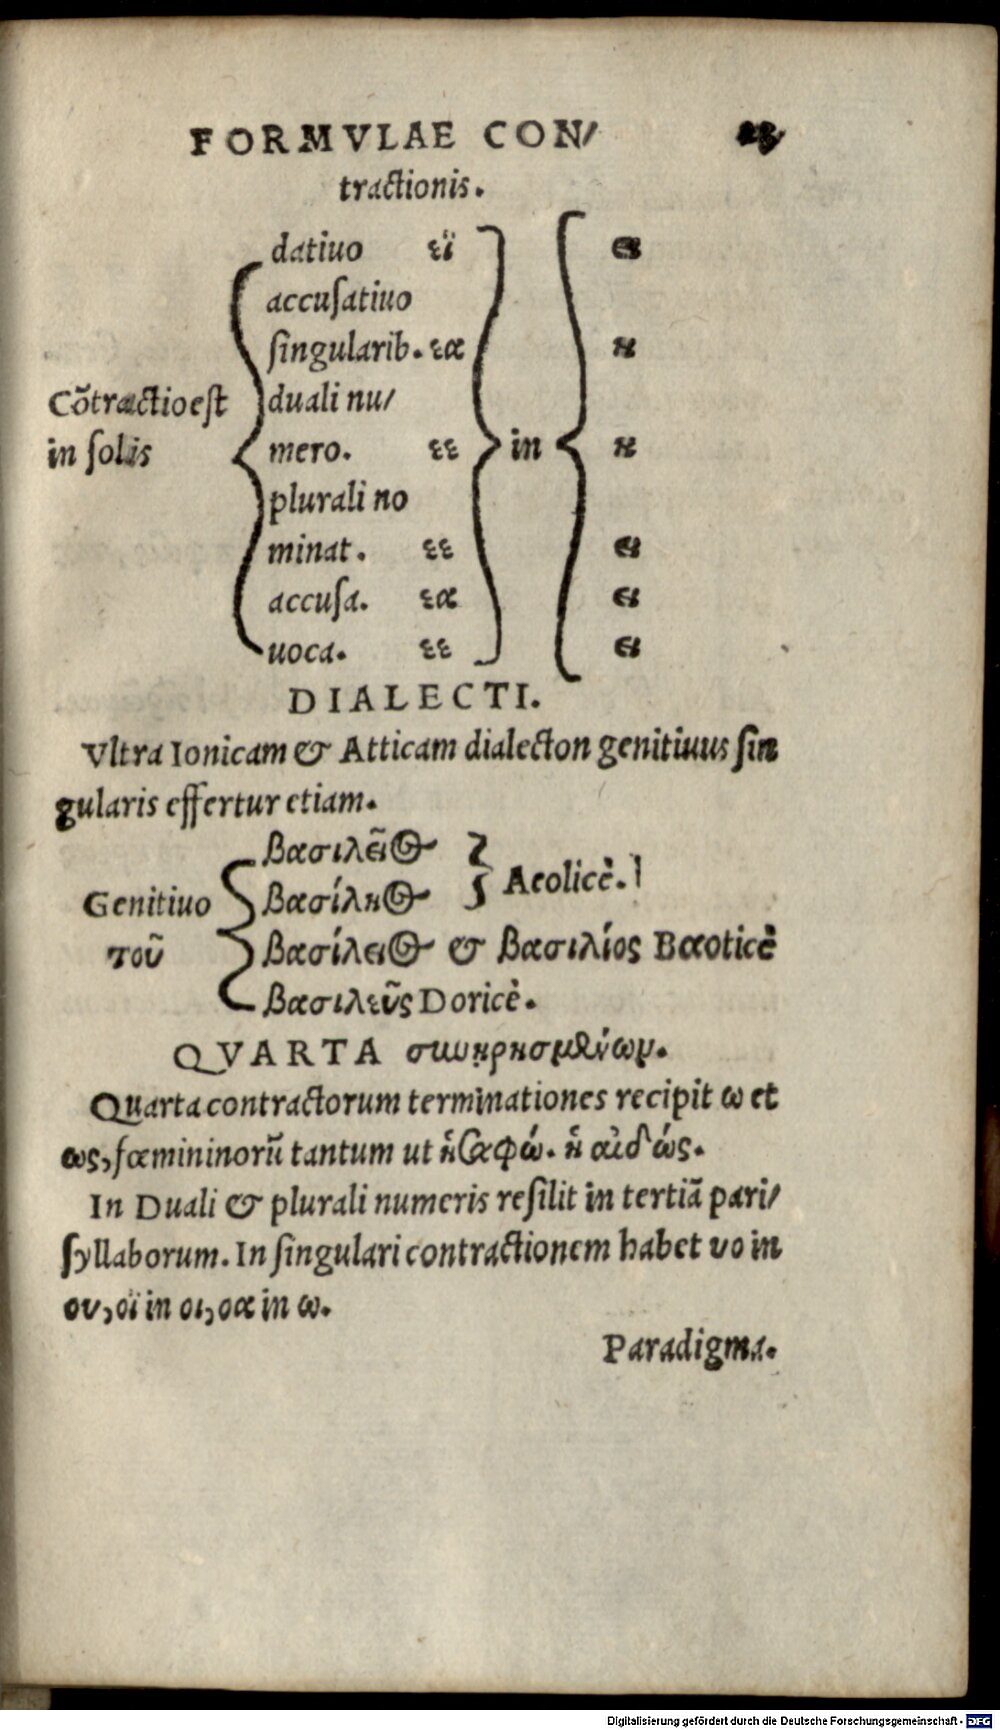 FORMVLAE CON/
tractionis.
datiuo εϊ ει
accusatiuo
ſingularib. εα η
Cõtractio est duali nu/
in ſolis mero. εε in η
plurali no
minat. εε ει
accuſa. εα ει
uoca. εε ει
DIALECTI.
Vltra Ionicam & Atticam dialecton genitiuus ſin
gularis effertur etiam.
βασιλεῖος
Genitiuo βασίληος Aeolicè.
τοῦ βασίλειος & βασιλίος Bœoticè
βασιλεῦς Doricè.
QVARTA συνῃρησμένων.
Quarta contractorum terminationes recipit ω et
ως, fœmininorũ tantum ut ἡ σαφώ. ἡ αἰδώς.
In Duali & plurali numeris reſilit in tertiã pari/
ſyllaborum. In ſingulari contractionem habet υο in
ου, οϊ in οι, οα in ω.
Paradigma.
Digitalisierung gefördert durch die Deutsche Forschungsgemeinschaft - DFG